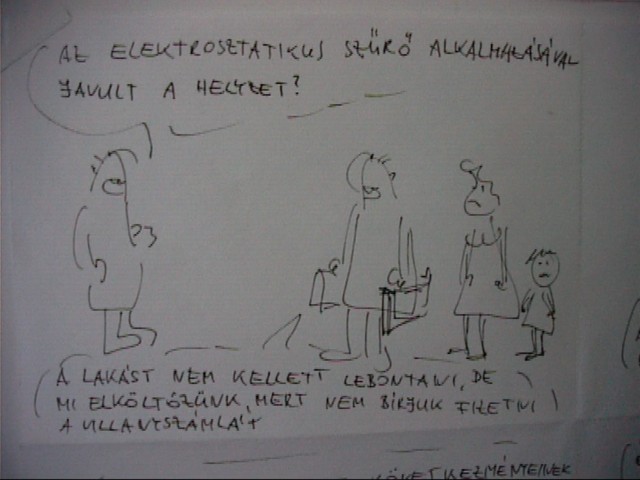 AZ ELEKTROSZTATIKUS SZŰRŐ ALKALMAZÁSÁVAL
JAVULT A HELYZET?
A LAKÁST NEM KELLETT LEBONTANI, DE
MI ELKÖLTÖZÜNK, MERT NEM BÍRJUK FIZETNI
A VILLANYSZÁMLÁT
KÖVETKEZMÉNYEINEK